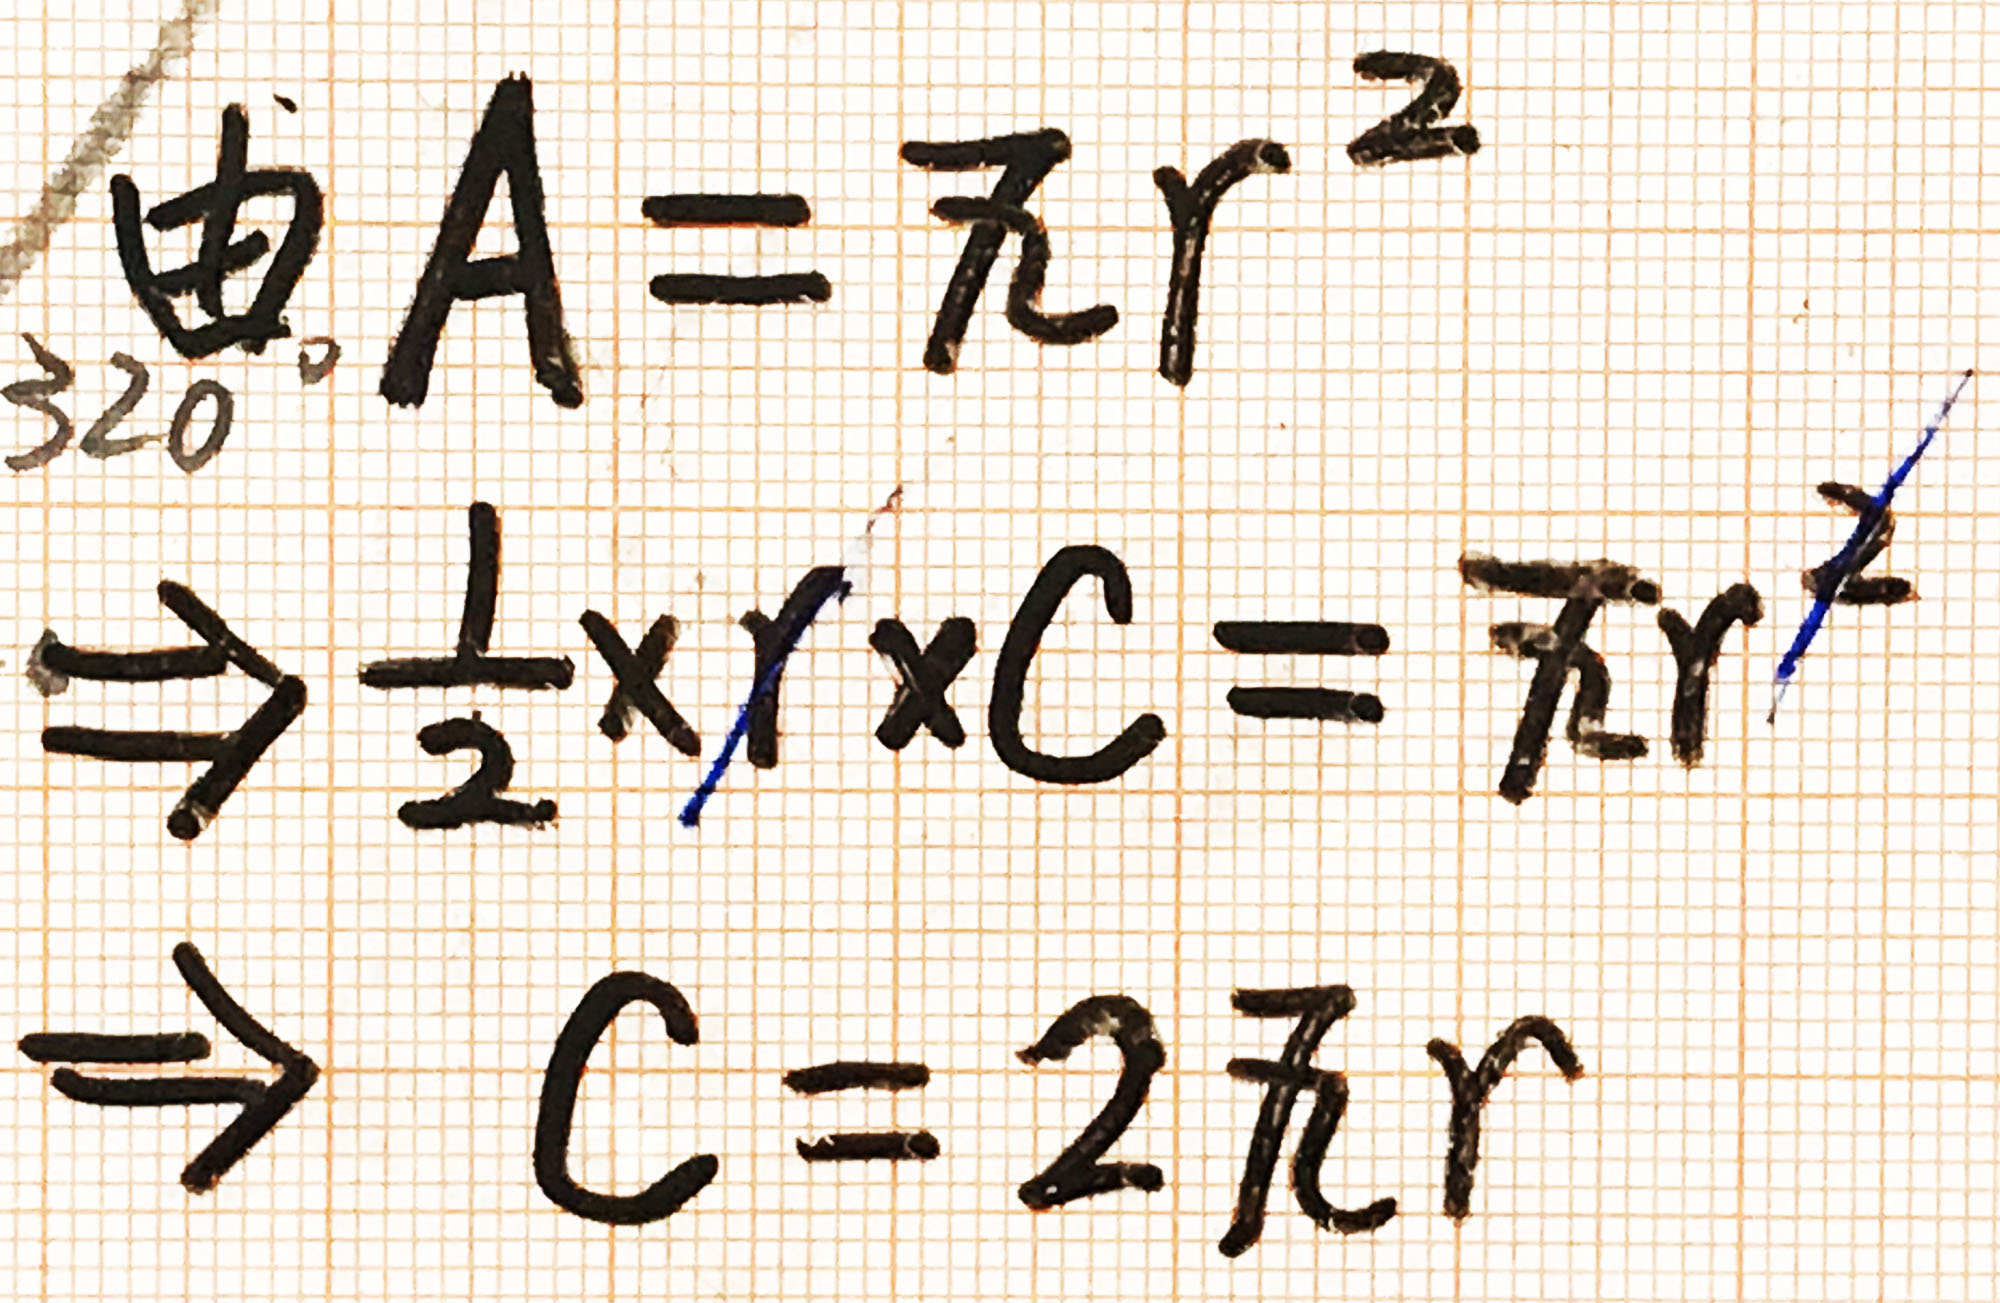 由 A = πr²
320°
⇒ 1/2 × r × C = πr²
⇒ C = 2πr